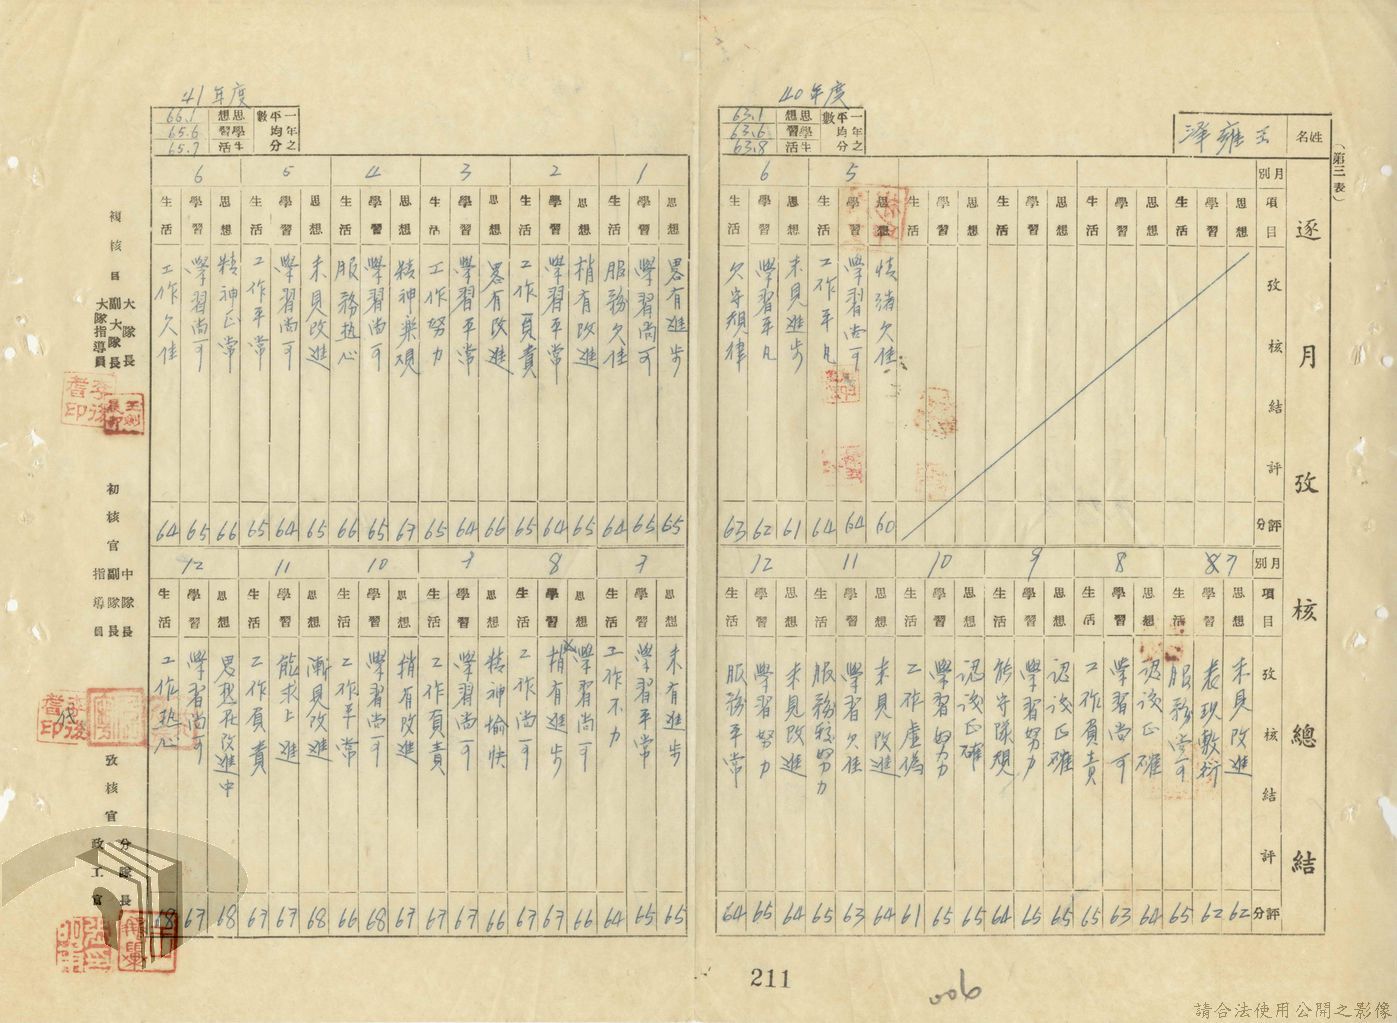 (第三表)
逐月攷核總結
姓名 王雍泽
40年度
一年之平均分數
思想 63.1
學習 63.6
生活 63.8
月別
項目 攷核結評 評分
5
思想 情緒欠佳 60
學習 學習尚可 64
生活 工作平凡 64
6
思想 未見進步 61
學習 學習平凡 62
生活 欠守規律 63
月別
項目 攷核結評 評分
7
思想 未見改進 62
學習 表現敷衍 62
生活 服務尚可 65
8
思想 認識正確 64
學習 學習尚可 63
生活 工作負責 65
9
思想 認識正確 65
學習 學習努力 65
生活 能守隊規 64
10
思想 認識正確 65
學習 學習努力 65
生活 工作虛偽 61
11
思想 未見改進 64
學習 學習欠佳 63
生活 服務較努力 65
12
思想 未見改進 64
學習 學習努力 65
生活 服務平常 64
41年度
一年之平均分數
思想 66.1
學習 65.6
生活 65.7
1
思想 畧有進步 65
學習 學習尚可 65
生活 服務欠佳 64
2
思想 稍有改進 65
學習 學習平常 64
生活 工作負責 65
3
思想 畧有改進 66
學習 學習平常 64
生活 工作努力 65
4
思想 精神樂觀 67
學習 學習尚可 65
生活 服務熱心 66
5
思想 未見改進 65
學習 學習尚可 64
生活 工作平常 65
6
思想 精神正常 66
學習 學習尚可 65
生活 工作欠佳 64
7
思想 未有進步 65
學習 學習平常 65
生活 工作不力 64
8
思想 學習尚可 66
學習 稍有進步 67
生活 工作尚可 67
9
思想 精神愉快 66
學習 學習尚可 67
生活 工作負責 67
10
思想 稍有改進 67
學習 學習尚可 68
生活 工作平常 66
11
思想 漸見改進 68
學習 能求上進 67
生活 工作負責 67
12
思想 思想在改進中 68
學習 學習尚可 67
生活 工作热心 68
複核官
大隊長
副大隊長
大隊指導員
初核官
中隊長
副隊長
指導員
攷核官
分隊長
政工官
211
006
請合法使用公開之影像